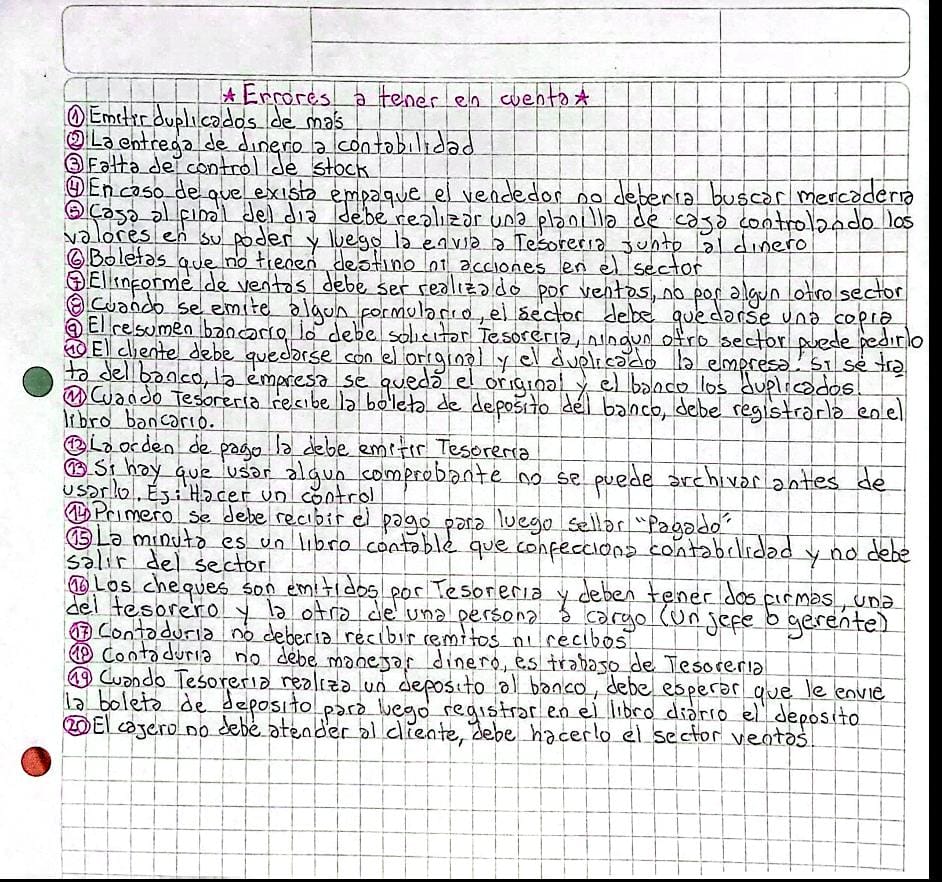 ★ Errores a tener en cuenta ★
① Emitir duplicados de más
② La entrega de dinero a contabilidad
③ Falta de control de stock
④ En caso de que exista empaque el vendedor no debería buscar mercadería
⑤ Caja al final del día debe realizar una planilla de caja controlando los
valores en su poder y luego la envía a Tesorería junto al dinero
⑥ Boletas que no tienen destino ni acciones en el sector
⑦ El informe de ventas debe ser realizado por ventas, no por algun otro sector
⑧ Cuando se emite algun formulario, el sector debe quedarse una copia
⑨ El resumen bancario lo debe solicitar Tesorería, ningun otro sector puede pedirlo
⑩ El cliente debe quedarse con el original y el duplicado la empresa. Si se tra
ta del banco, la empresa se queda el original y el banco los duplicados.
⑪ Cuando Tesorería recibe la boleta de deposito del banco, debe registrarla en el
libro bancario.
⑫ La orden de pago la debe emitir Tesorería
⑬ Si hay que usar algun comprobante no se puede archivar antes de
usarlo. Ej: Hacer un control
⑭ Primero se debe recibir el pago para luego sellar "Pagado"
⑮ La minuta es un libro contable que confecciona contabilidad y no debe
salir del sector
⑯ Los cheques son emitidos por Tesorería y deben tener dos firmas, una
del tesorero y la otra de una persona a cargo (un jefe o gerente)
⑰ Contaduría no debería recibir remitos ni recibos
⑱ Contaduría no debe manejar dinero, es trabajo de Tesorería
⑲ Cuando Tesorería realiza un deposito al banco, debe esperar que le envie
la boleta de deposito para luego registrar en el libro diario el deposito
⑳ El cajero no debe atender al cliente, debe hacerlo el sector ventas.